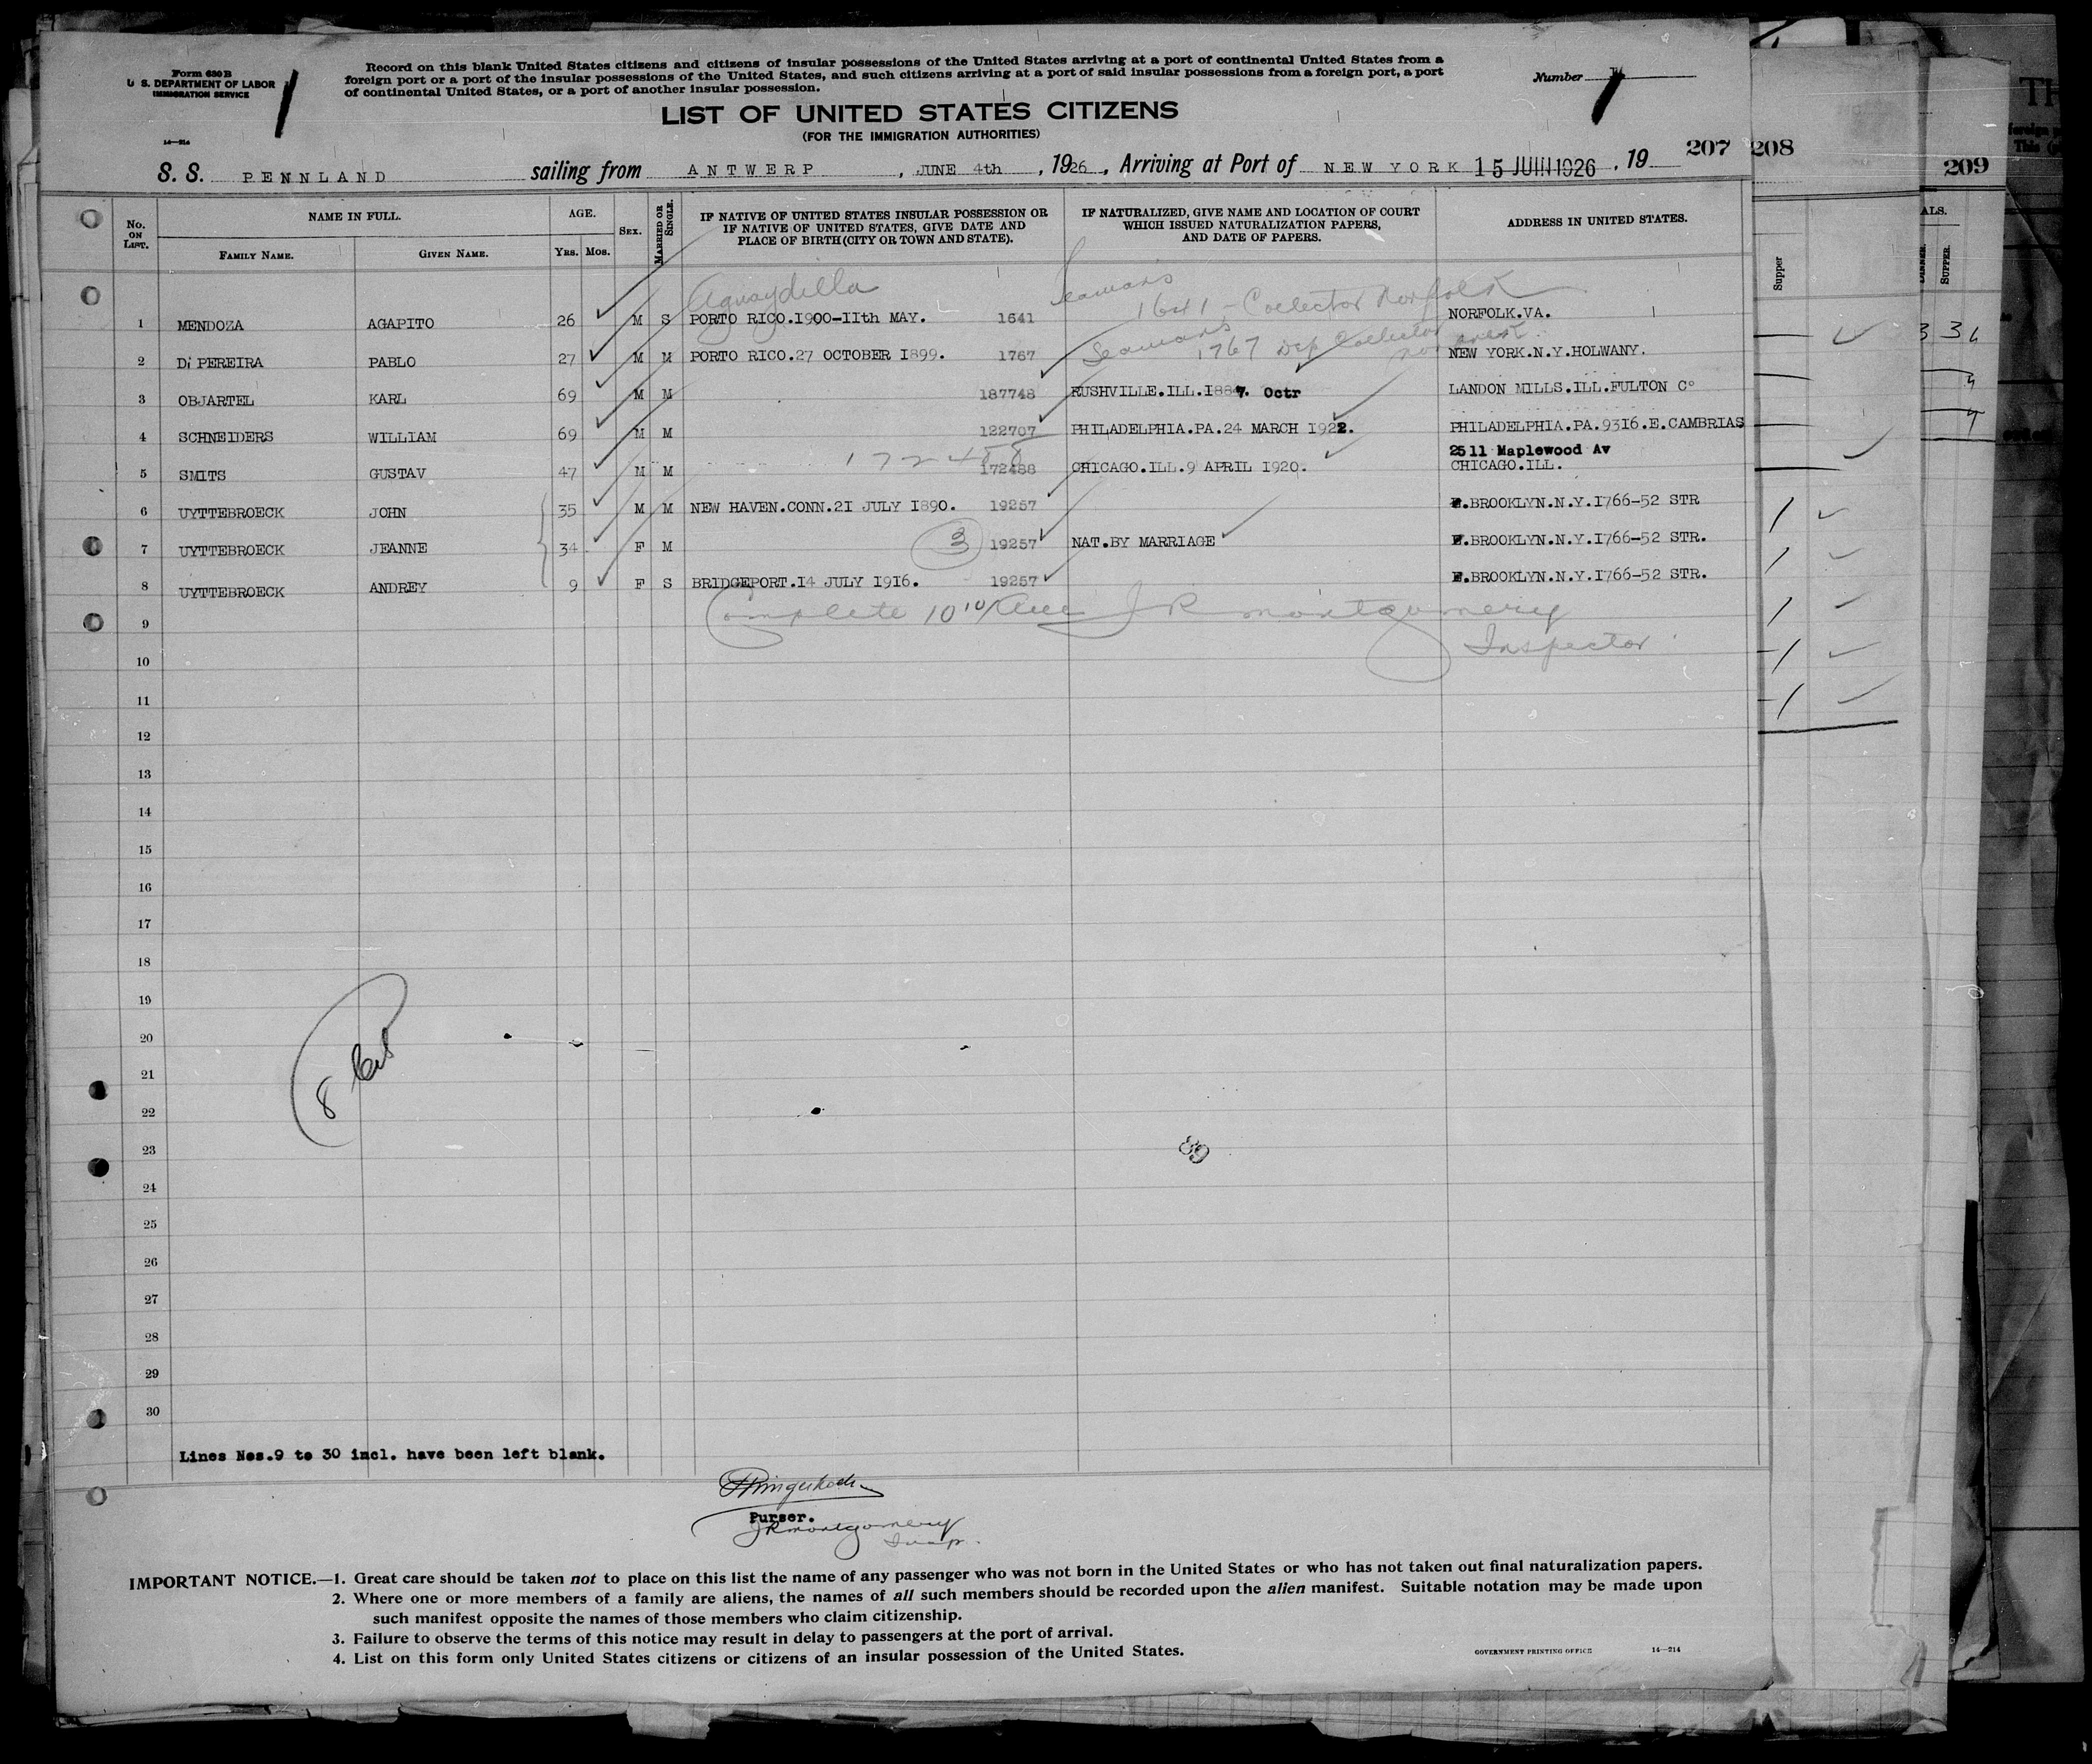 Form 630 B
U. S. DEPARTMENT OF LABOR
IMMIGRATION SERVICE
14—214
Record on this blank United States citizens and citizens of insular possessions of the United States arriving at a port of continental United States from a
foreign port or a port of the insular possessions of the United States, and such citizens arriving at a port of said insular possessions from a foreign port, a port
of continental United States, or a port of another insular possession.
Number
LIST OF UNITED STATES CITIZENS
(FOR THE IMMIGRATION AUTHORITIES)
207 208 209
S. S. PENNLAND sailing from ANTWERP, JUNE 4th, 1926, Arriving at Port of NEW YORK 15 JUIN 1926, 19
No. ON LIST. NAME IN FULL. AGE. SEX. MARRIED OR SINGLE. IF NATIVE OF UNITED STATES INSULAR POSSESSION OR IF NATIVE OF UNITED STATES, GIVE DATE AND PLACE OF BIRTH (CITY OR TOWN AND STATE). IF NATURALIZED, GIVE NAME AND LOCATION OF COURT WHICH ISSUED NATURALIZATION PAPERS, AND DATE OF PAPERS. ADDRESS IN UNITED STATES.
FAMILY NAME. GIVEN NAME. YRS. MOS.
Supper
ALS.
SUPPER.
Aguaydilla Seamans
1641 - Collector Norfolk
1 MENDOZA AGAPITO 26 M S PORTO RICO.1900-11th MAY. 1641 NORFOLK.VA.
Seamans 1767 Dep Collector
2 Di PEREIRA PABLO 27 M M PORTO RICO.27 OCTOBER 1899. 1767 NEW YORK.N.Y.HOLWANY.
3 OBJARTEL KARL 69 M M 187748 RUSHVILLE.ILL.1887. Octr LANDON MILLS.ILL.FULTON Co
4 SCHNEIDERS WILLIAM 69 M M 122707 PHILADELPHIA.PA.24 MARCH 1922. PHILADELPHIA.PA.9316.E.CAMBRIAS
172488 2511 Maplewood Av
5 SMITS GUSTAV 47 M M 172488 CHICAGO.ILL.9 APRIL 1920. CHICAGO.ILL.
6 UYTTEBROECK JOHN 35 M M NEW HAVEN.CONN.21 JULY 1890. 19257 E.BROOKLYN.N.Y.1766-52 STR
7 UYTTEBROECK JEANNE 34 F M 3 19257 NAT.BY MARRIAGE E.BROOKLYN.N.Y.1766-52 STR.
8 UYTTEBROECK ANDREY 9 F S BRIDGEPORT.14 JULY 1916. 19257 E.BROOKLYN.N.Y.1766-52 STR.
9 Complete 10 10/ J R Montgomery
Inspector
10
11
12
13
14
15
16
17
18
19
20
21
8
22
23
89
24
25
26
27
28
29
30
Lines Nos.9 to 30 incl. have been left blank.
Purser.
J R Montgomery
Insp.
IMPORTANT NOTICE.—1. Great care should be taken not to place on this list the name of any passenger who was not born in the United States or who has not taken out final naturalization papers.
2. Where one or more members of a family are aliens, the names of all such members should be recorded upon the alien manifest. Suitable notation may be made upon
such manifest opposite the names of those members who claim citizenship.
3. Failure to observe the terms of this notice may result in delay to passengers at the port of arrival.
4. List on this form only United States citizens or citizens of an insular possession of the United States.
GOVERNMENT PRINTING OFFICE 14—214